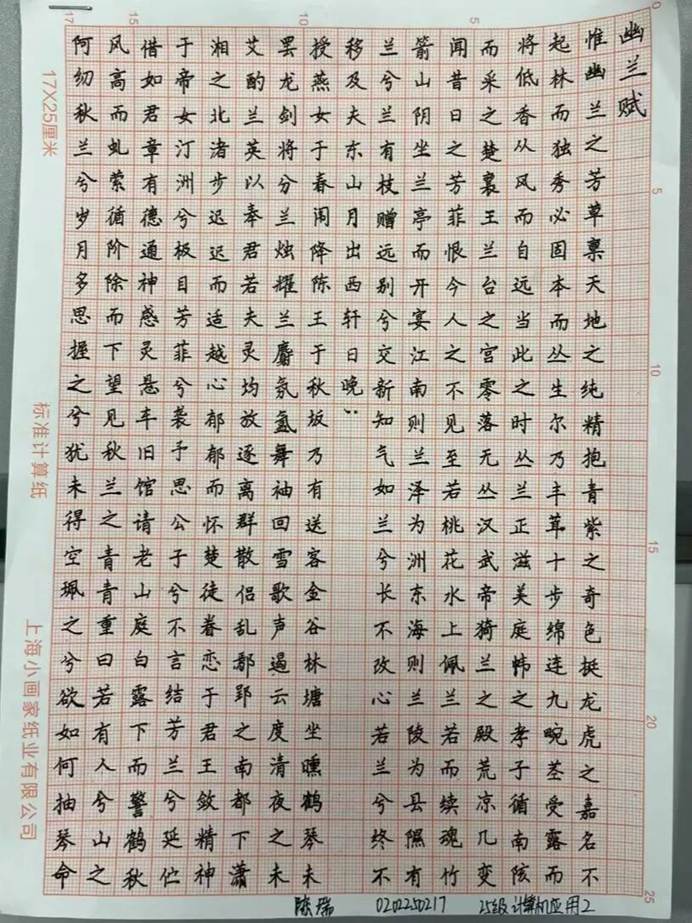 幽兰赋
惟幽兰之芳草禀天地之纯精抱青紫之奇色挺龙虎之嘉名不
起林而独秀必固本而丛生尔乃丰茸十步绵连九畹茎受露而
将低香从风而自远当此之时丛兰正滋美庭帏之孝子循南陔
而采之楚襄王兰台之宫零落无丛汉武帝猗兰之殿荒凉几变
闻昔日之芳菲恨今人之不见至若桃花水上佩兰若而续魂竹
箭山阴坐兰亭而开宴江南则兰泽为洲东海则兰陵为县隰有
兰兮兰有枝赠远别兮交新知气如兰兮长不改心若兰兮终不
移及夫东山月出西轩日晚:
授燕女于春闺降陈王于秋坂乃有送客金谷林塘坐曛鹤琴未
罢龙剑将分兰烛耀兰麝氛氲舞袖回雪歌声遏云度清夜之未
艾酌兰英以奉君若夫灵均放逐离群散侣乱鄢郢之南都下潇
湘之北渚步迟迟而适越心郁郁而怀楚徒眷恋于君王敛精神
于帝女汀洲兮极目芳菲兮袭予思公子兮不言结芳兰兮延伫
借如君章有德通神感灵悬车旧馆请老山庭白露下而警鹤秋
风高而乱萦循阶除而下望见秋兰之青青重曰若有人兮山之
阿纫秋兰兮岁月多思握之兮犹未得空珮之兮欲如何抽琴命
陈瑞 0202250217 25级计算机应用2
17X25厘米
标准计算纸
上海小画家纸业有限公司
0
5
10
15
20
25
5
10
15
17